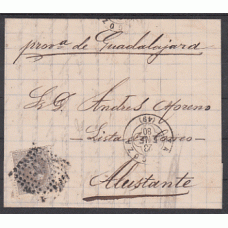 prov.ª de Guadalajara
S. D. Andres Moreno
Lista de Correo
Alustante